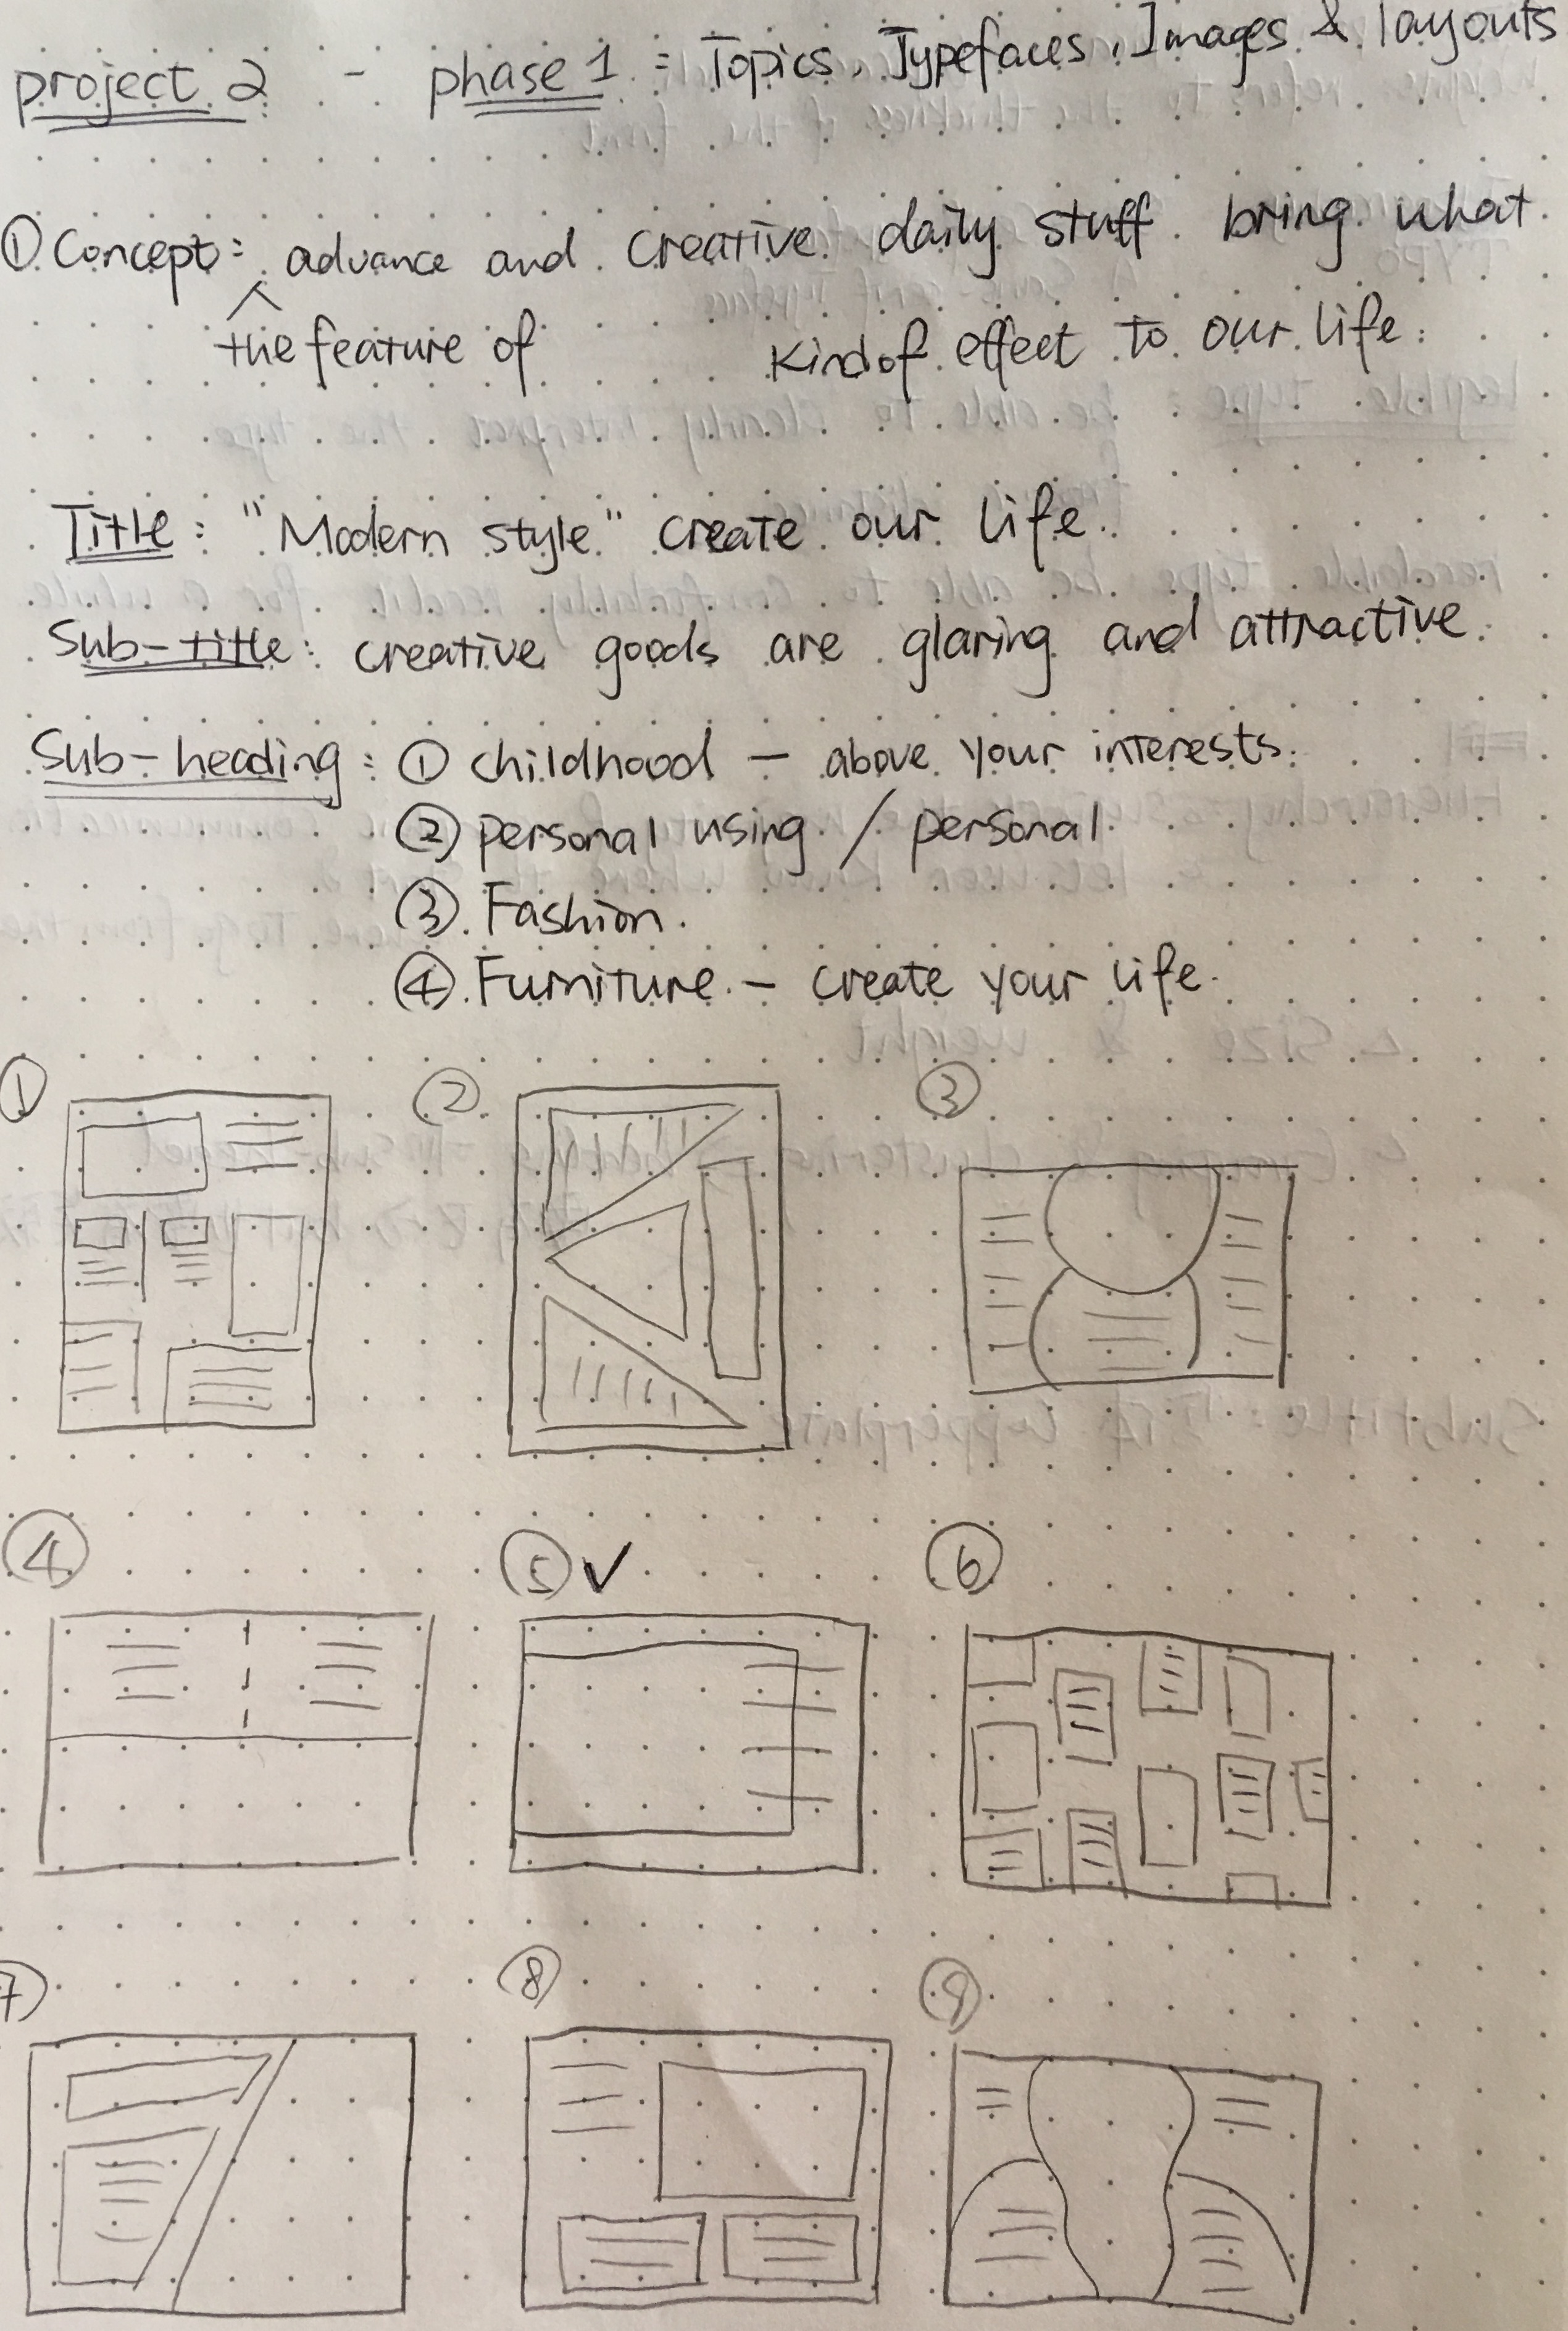 project 2 - phase 1 : Topics, Typefaces, Images & layouts
① Concept: advance and creative daily stuff bring what
the feature of kind of effect to our life.
Title: "Modern style" create our life.
Sub-title: creative goods are glaring and attractive.
Sub-heading: ① childhood - above your interests.
② personal using / personal.
③. Fashion.
④. Furniture. - create your life.
① ② ③
④ ⑤ ✓ ⑥
⑦ ⑧ ⑨